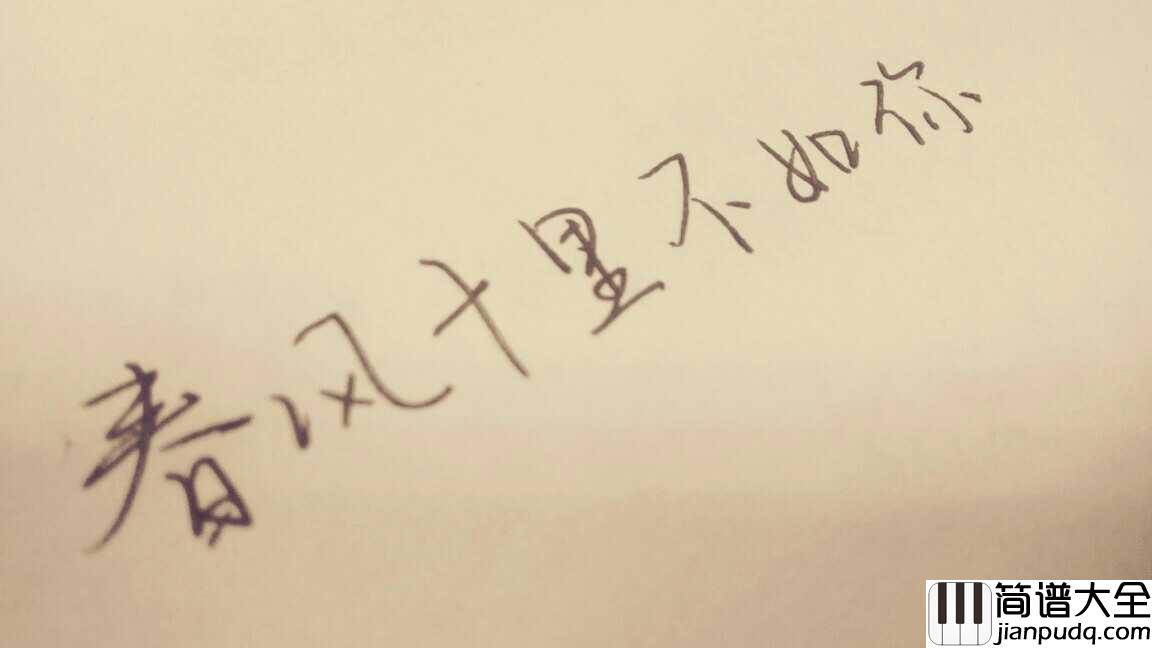 春风十里不如你
简谱大全
jianpudq.com